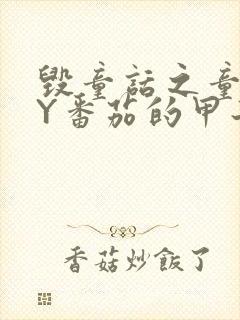 毁童话之童
Y番茄的甲
香菇炒飯了